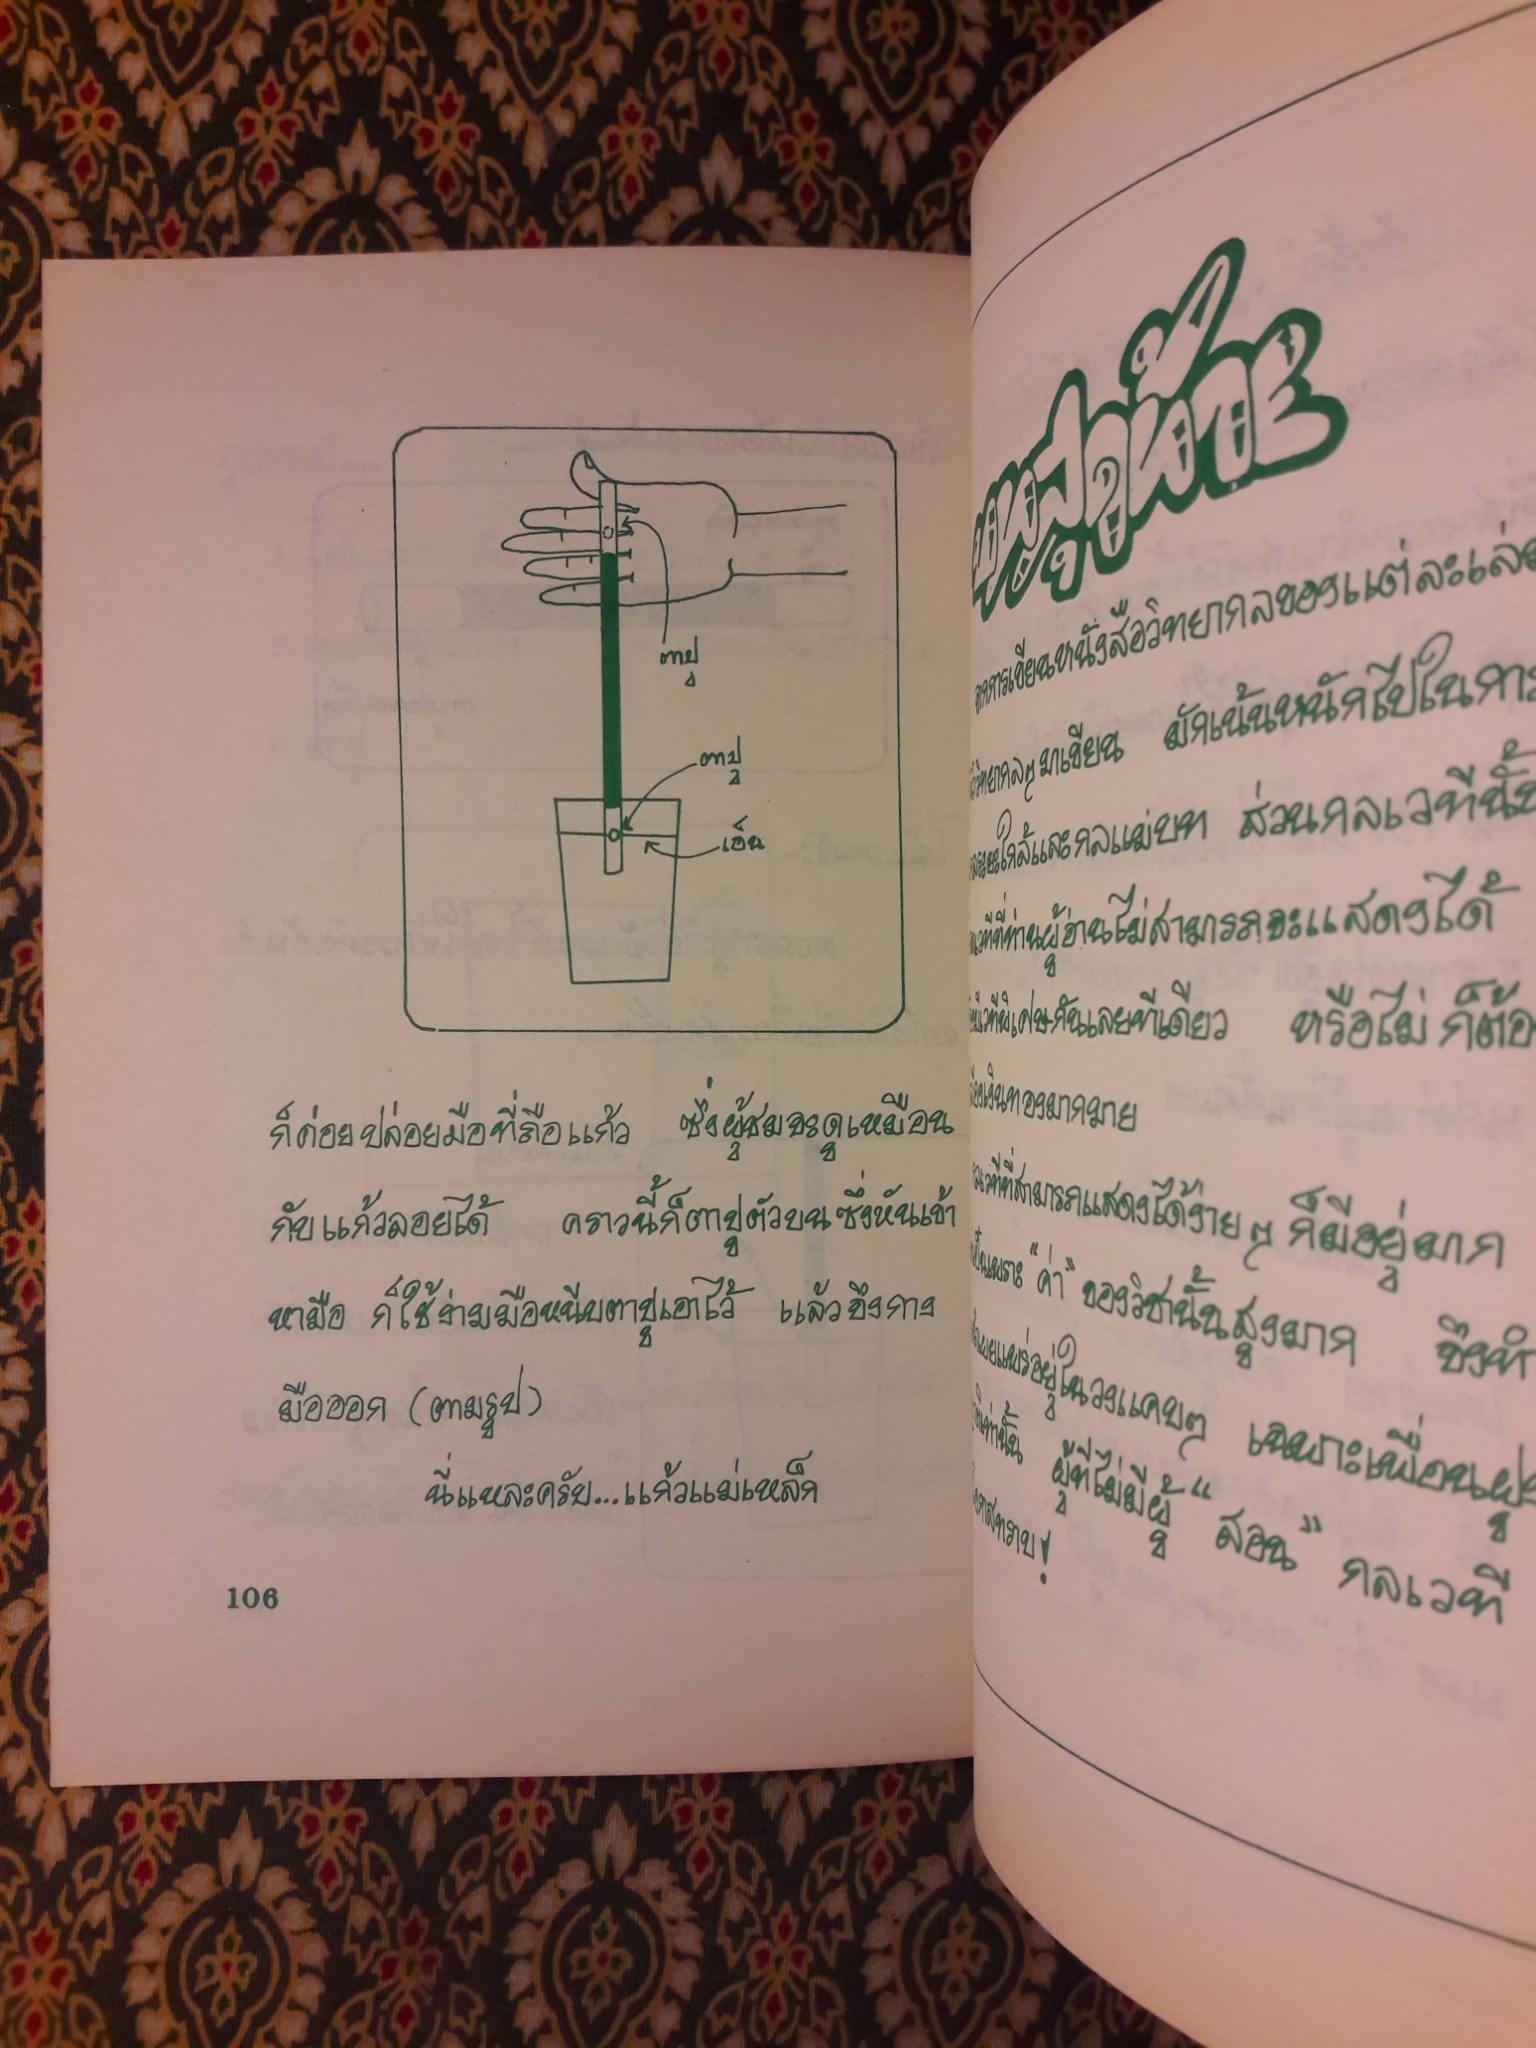 ตาปู
ตาปู
เอ็น
ก็ค่อยปล่อยมือที่ถือแก้ว ซึ่งผู้ชมจะดูเหมือน
กับแก้วลอยได้ คราวนี้ก็ตาปูตัวบนซึ่งหันเข้า
หามือ ก็ใช้ง่ามมือหนีบตาปูเอาไว้ แล้วจึงกาง
มือออก (ตามรูป)
นี่แหละครับ...แก้วแม่เหล็ก
106
การเขียนหนังสือวิทยากลของแต่ละเล่ม
วิทยากลๆมาเขียน มักเน้นหนักไปในการ
ระยะใกล้และกลแม่บท ส่วนกลเวทีนั้น
เวทีที่ท่านผู้อ่านไม่สามารถจะแสดงได้
มีเวทีพิเศษกันเลยทีเดียว หรือไม่ก็ต้อง
เงินทองมากมาย
เวทีที่สามารถแสดงได้ง่ายๆ ก็มีอยู่มาก
เป็นเพราะ "ค่า" ของวิชานั้นสูงมาก จึงทำ
เผยแพร่อยู่ในวงแคบๆ เฉพาะเพื่อนฝูง
เท่านั้น ผู้ที่ไม่มีผู้ "สอน" กลเวที
ทราบ!